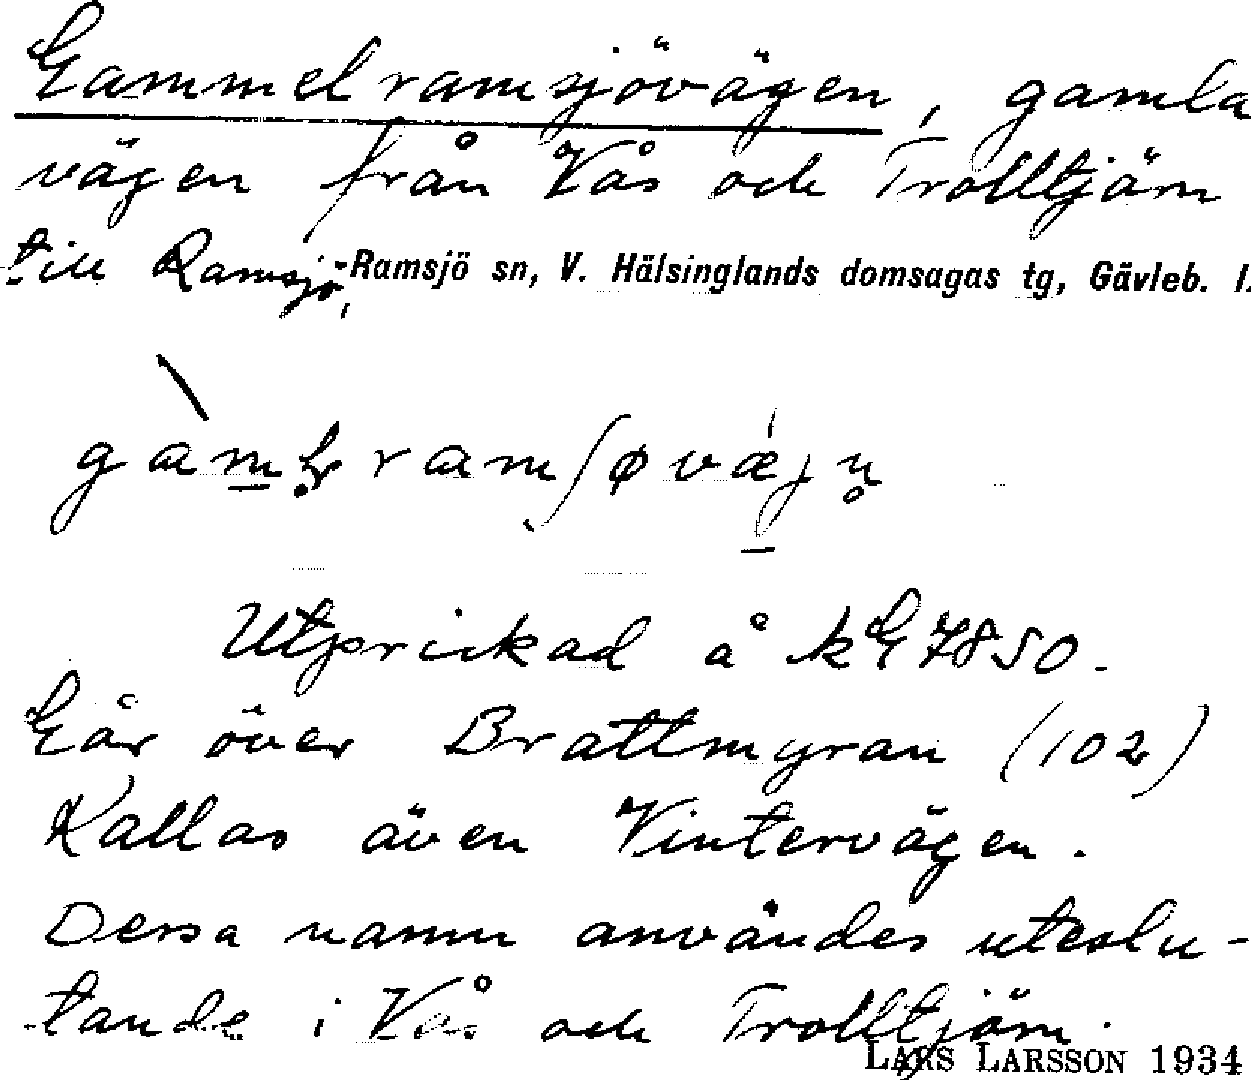 Gammelramsjövägen, gamla
vägen från Vås och Trolltjärn
till Ramsjö, Ramsjö sn, V. Hälsinglands domsagas tg, Gävleb. l.
Utprickad å kG 7850.
Går över Brattmyran (102)
Kallas även Vintervägen.
Dessa namn användes uteslu-
tande i Vås och Trolltjärn.
LARS LARSSON 1934